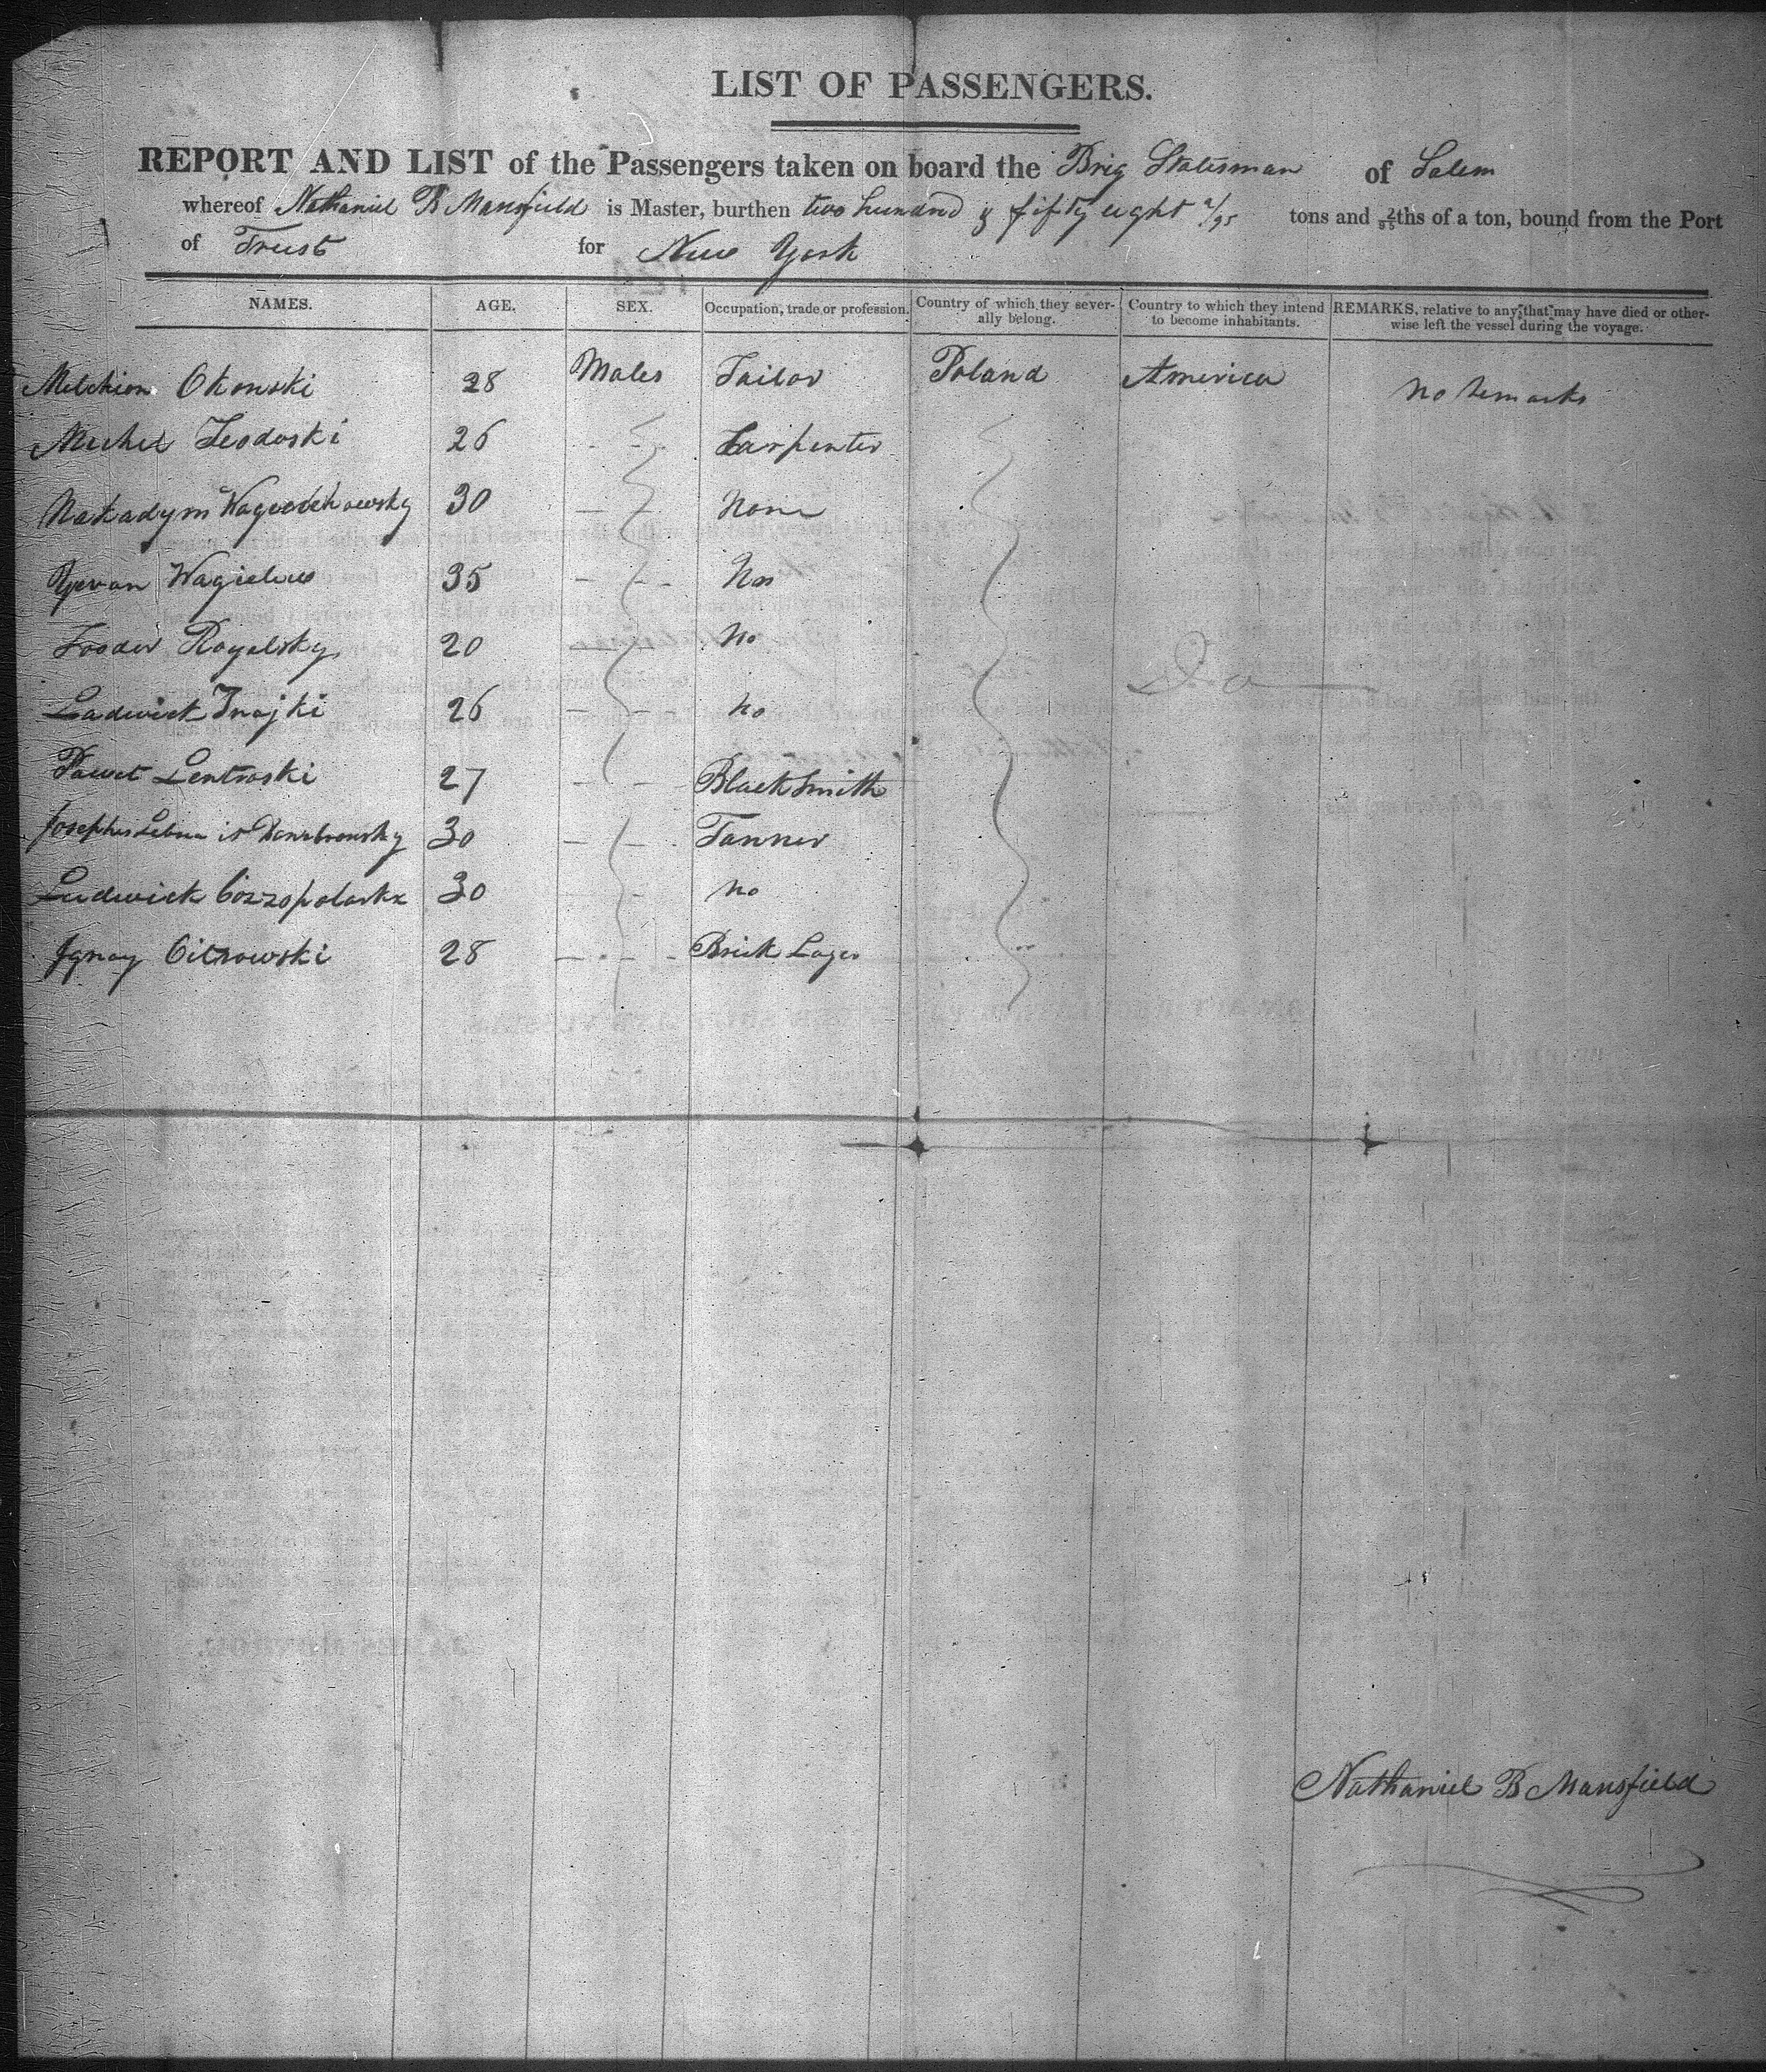 LIST OF PASSENGERS.
REPORT AND LIST of the Passengers taken on board the Brig Statesman of Salem
whereof Nathaniel B Mansfield is Master, burthen two hundred & fifty eight 2/95 tons and 2/95ths of a ton, bound from the Port
of Triest for New York
NAMES. AGE. SEX. Occupation, trade or profession. Country of which they severally belong. Country to which they intend to become inhabitants. REMARKS, relative to any that may have died or otherwise left the vessel during the voyage.
Melchion Okonski 28 Males Tailor Poland America No Remarks
Michel Teodoski 26 Carpenter
Nakadym 30 None
Yevan 35 No
Fooder Royalsky 20 No Do
Ladwick Inojki 26 No
Pawet Lentroski 27 Black Smith
Josephus 30 Tanner
Ludwick 30 No
Ignay Citrowski 28 Brick Layer
Nathaniel B Mansfield